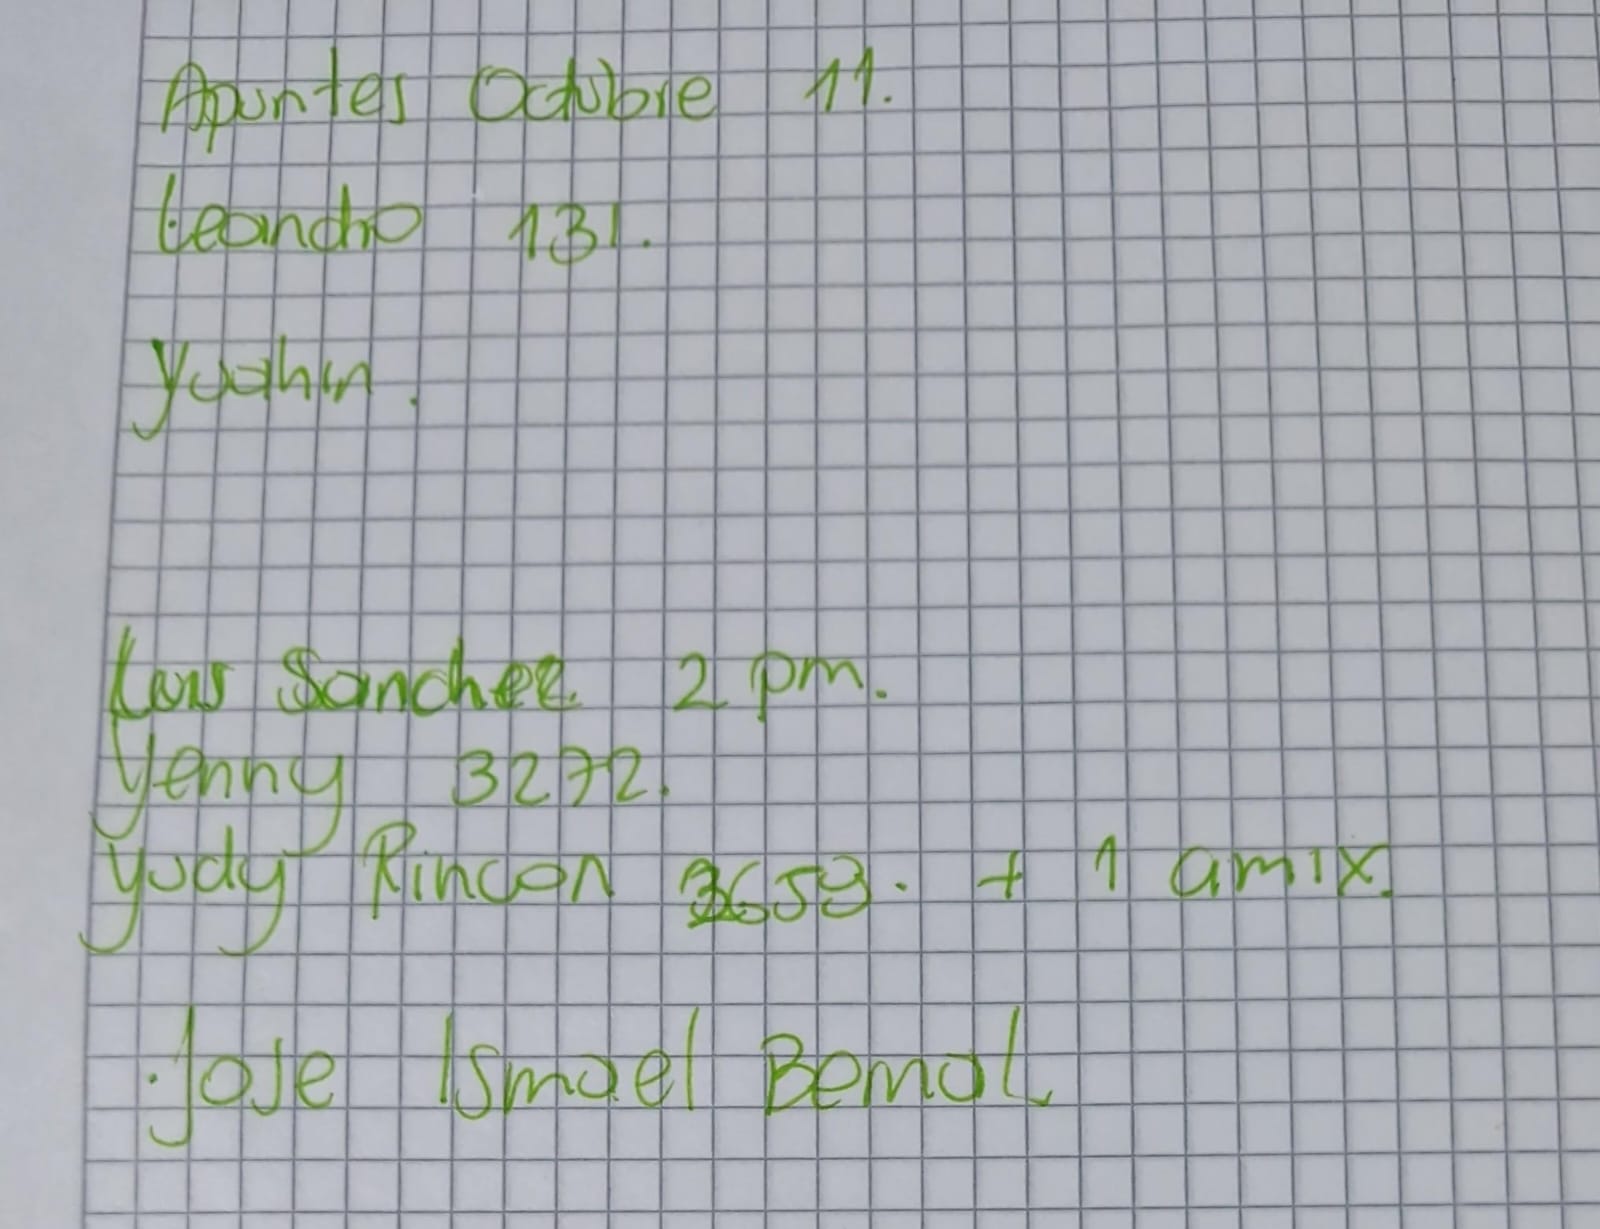 Apuntes Octubre 11.
Leandro 131.
Yuahin.
Luis Sanchez. 2 pm.
Yenny 3272.
Yudy Rincon 3659. + 1 amix.
Jose Ismael Bernal